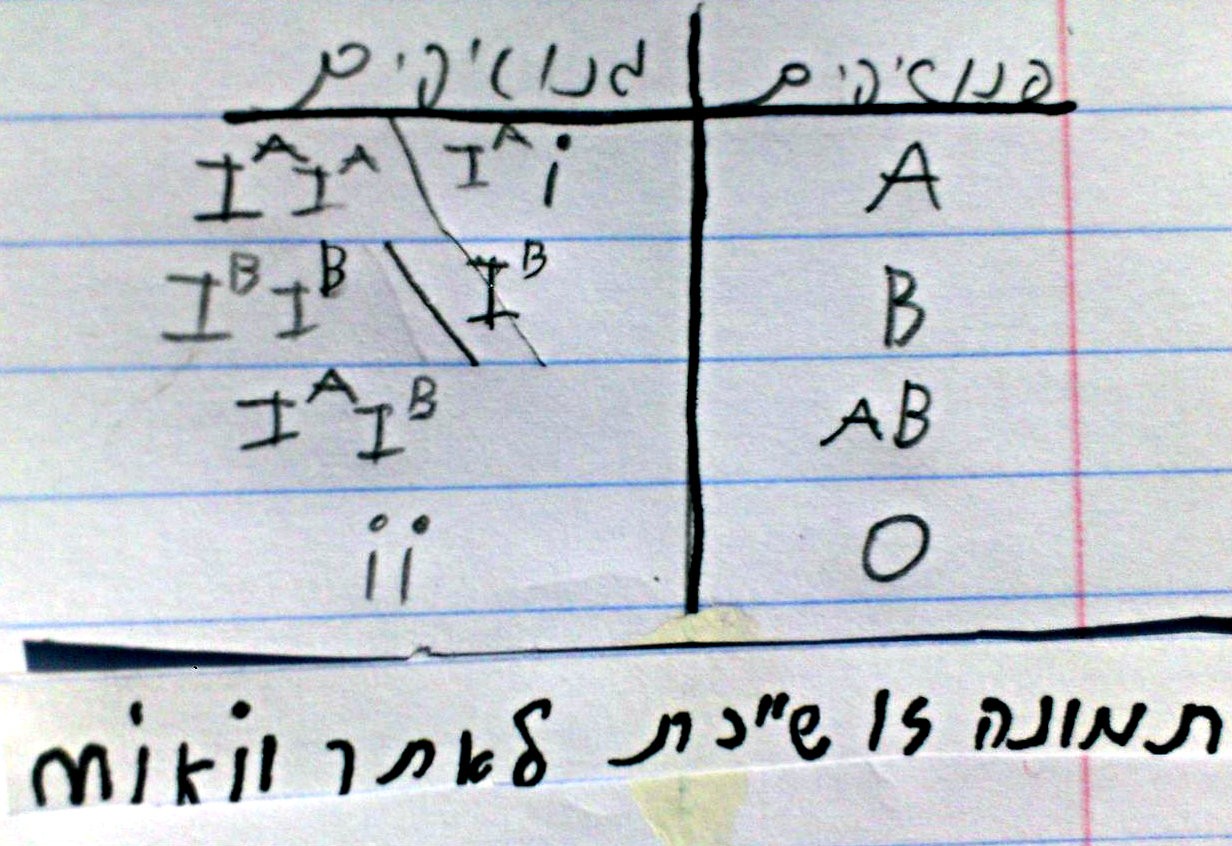 פנוטיפים גנוטיפים
A IᴬIᴬ Iᴬi
B IᴮIᴮ Iᴮ
AB IᴬIᴮ
O ii
תמונה זו שייכת לאתר